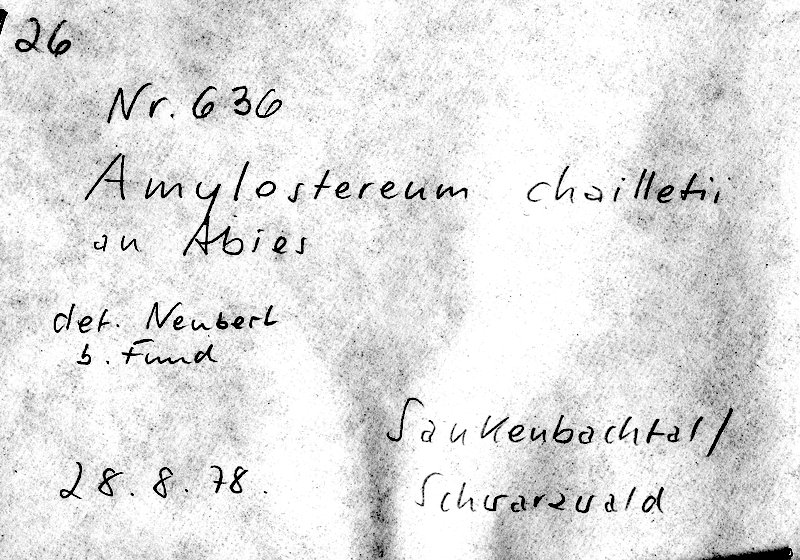 26
Nr. 636
Amylostereum chailletii
an Abies
det. Neubert
b. Fund
Sankenbachtal/
28.8.78.
Schwarzwald